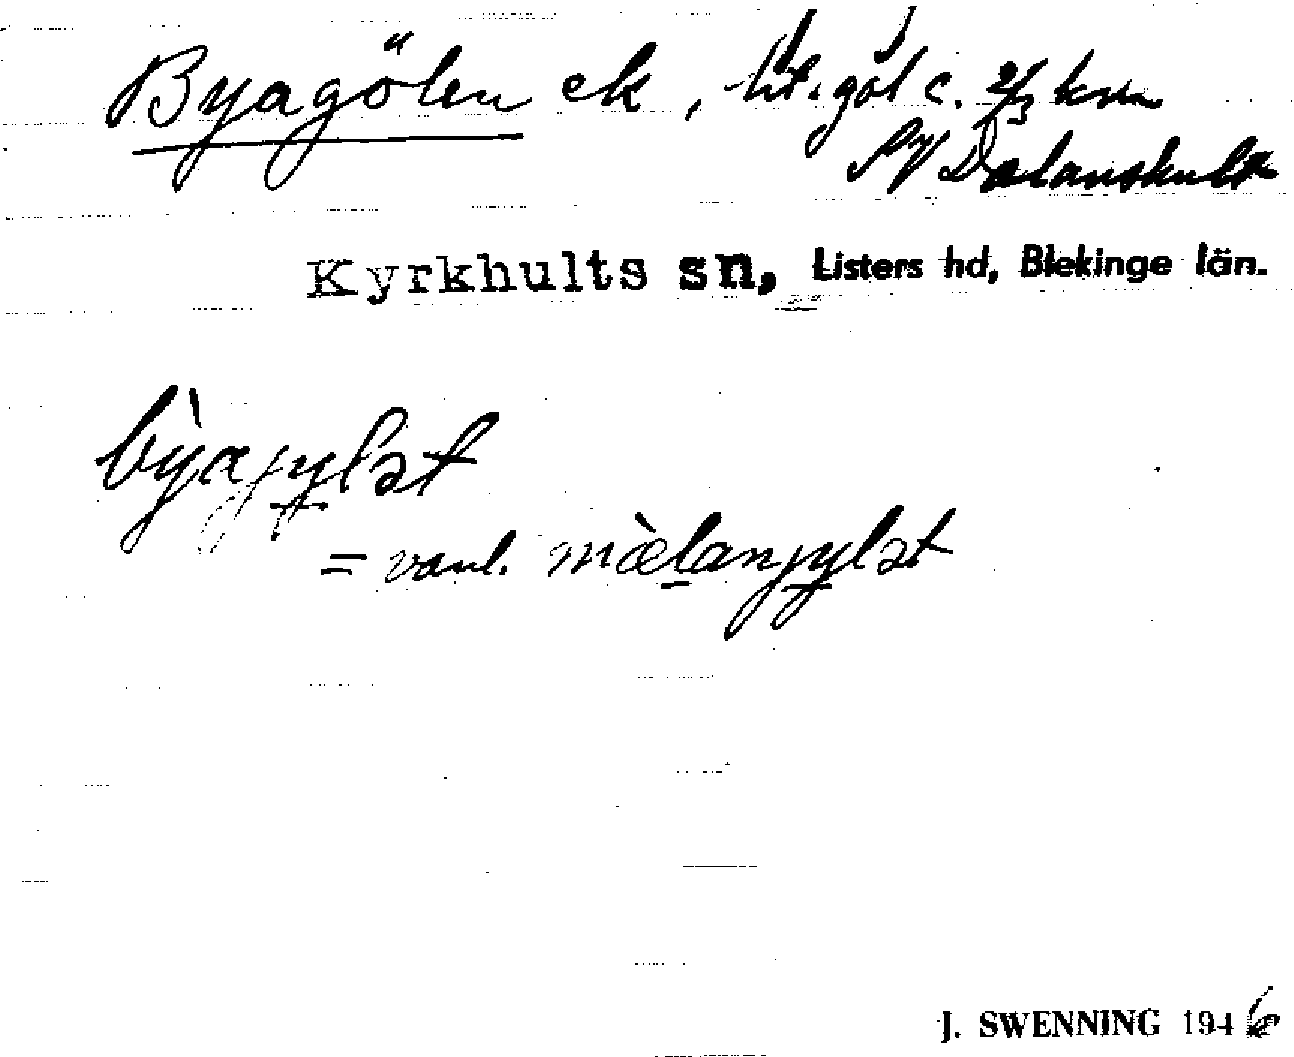 Byagölen ek, lit. göl c. 2/3 km
SV Dalanshult
Kyrkhults sn, Listers hd, Blekinge län.
bỳajylət
= vanl. mæ̀lanjylət
J. SWENNING 1946